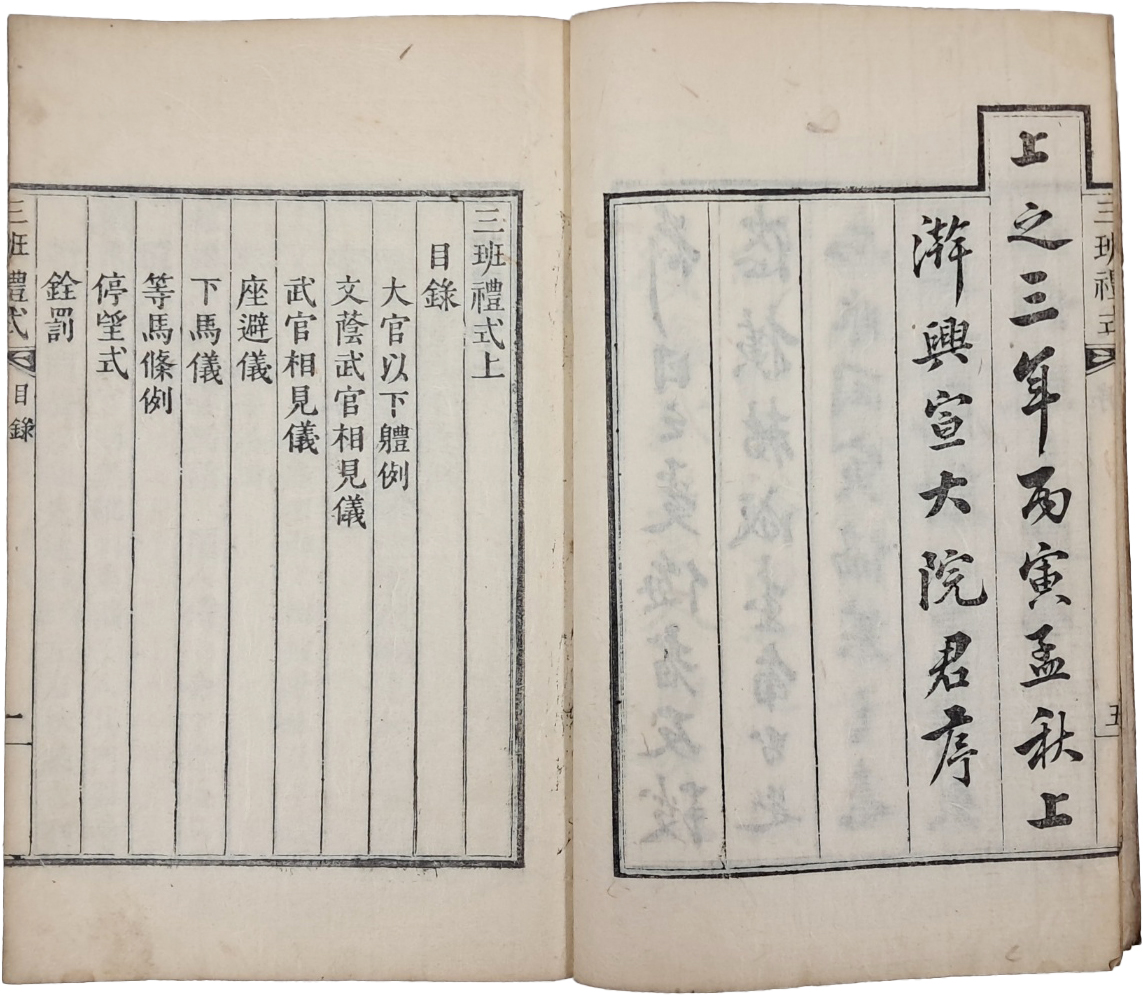 三班禮式
五
上之三年丙寅孟秋上
澣興宣大院君序
三班禮式上
目錄
大官以下軆例
文蔭武官相見儀
武官相見儀
座避儀
下馬儀
等馬條例
停望式
銓罰
三班禮式 目錄 一